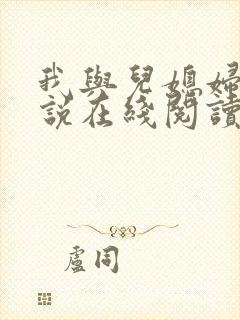 我與兒媳婦
說在綫閱讀
盧同